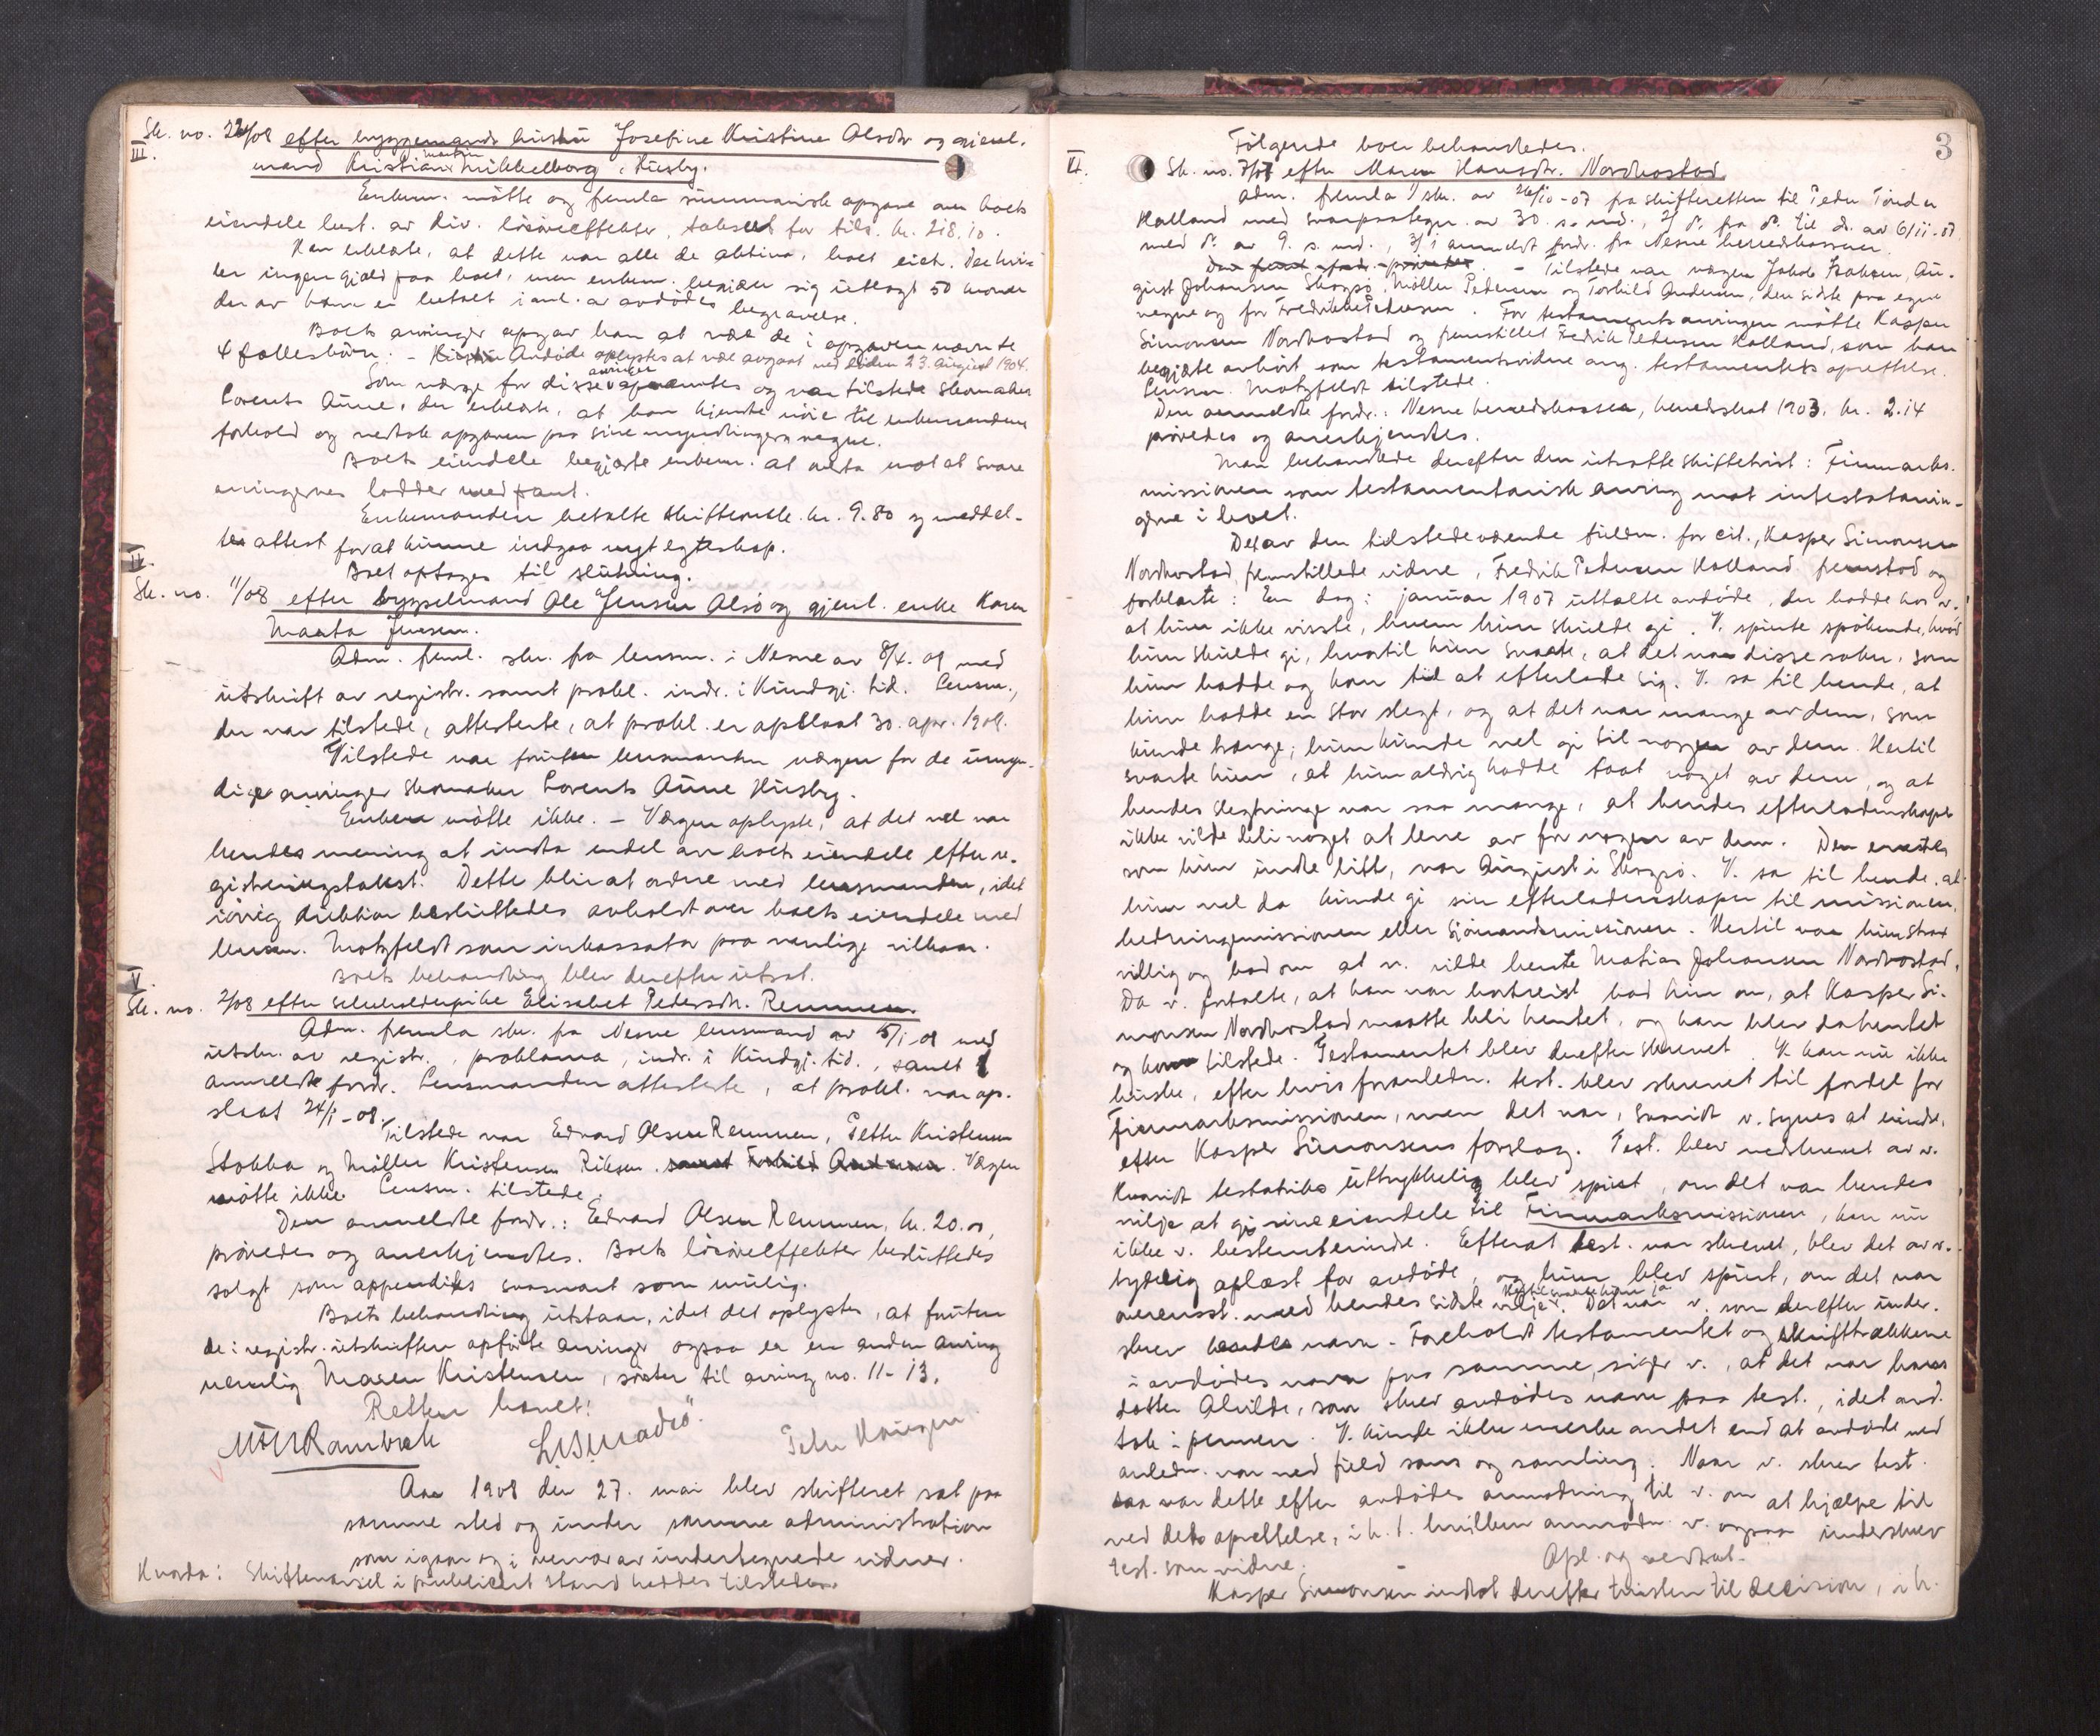 Sk. no. 22/08 efter byggemands hustru Josefine Kristine Olsdtr. og gjenl.
III.
martin
mand Kristian Mikkelborg, Husby.
Enkem. møtte og fremla summarisk opgave over boets
eiendele best. av div. løsøreeffekter, taksert for tils. kr. 218.10.
Han erklærte, at dette var alle de aktiva, boet eied. Der hvi-
ler ingen gjæld paa boet, men enkem. begjærer sig utlagt 50 kroner
der av ham er betalt i anl. av avdødes begravelse.
Boets arvinger opgav han at være de i opgaven nævnte
4 fællesbørn. - Avdøde oplystes at være avgaat ved døden 23. august 1904.
arvinger
Som værge for disse opnævntes og var tilstede skomaker
Lorents Aune, der erklærte, at han kjendte nøie til enkemandens
forhold og vedtok opgaven paa sine myndlingers vegne.
Boets eiendele begjærte enkem. at overta mot at svare
arvingernes lodder med pant.
Enkemanden betalte skifteomk. kr. 9.80 og meddel-
tes attest for at kunne indgaa nyt egteskap.
Boet optages til slutning.
IV.
Sk. no. 11/08 efter bygselmand Ole Jensen Alsø og gjenl. enke Karen
Marta Jensen.
Adm. freml. skr. fra lensm. i Nesne av 8/4. 08 med
utskrift av registr. samt prokl. indr. i Kundgj. tid. Lensm.,
der var tilstede, attesterte, at prokl. er opslaat 30. apr. 1908.
Tilstede var foruten lensmanden værgen for de umyn-
dige arvinger skomaker Lorents Aune Husby.
Enken møtte ikke. - Værgen oplyste, at det vel var
hendes mening at indta endel av boets eiendele efter re-
gistreringstakst. Dette blir at ordne med lensmanden, idet
iøvrig auktion besluttedes avholdt over boets eiendele med
lensm. Motzfeldt som inkassator paa vanlige vilkaar.
Boets behandling blev derefter utsat.
V.
Sk. no. 2/08 efter selvholderpike Elisabet Pedersdtr. Remmen.
Adm. fremla skr. fra Nesne lensmand av 5/1-08 med
utskr. av registr., proklama, indr. i Kundgj. tid., samt 1
anmeldt fordr. Lensmanden attesterte, at prokl. var op-
slaat 24/1-08.
Tilstede var Edvard Olsen Remmen, Petter Kristensen
Stokka og Møller Kristensen samt Torkild Andersen. Værgen
møtte ikke. Lensm. tilstede.
Den anmeldte fordr.: Edvard Olsen Remmen, kr. 20.00,
prøvedes og anerkjendtes. Boets løsøreeffekter besluttedes
solgt som appendiks svarsnart som mulig.
Boets behandling utstaar, idet det oplystes, at foruten
de i registr. utskriften opførte arvinger ogsaa er en anden arving
nemlig Maren Kristensen, søster til arving no. 11-13.
Retten hævet!
Aar 1908 den 27. mai blev skifteret sat paa
samme sted og under samme administration
som igaar og i nærvær av undertegnede vidner.
Hvorda: Skiftevarsel i publicert stand haddes tilstede.
3
Følgende boer behandledes.
VI.
Sk. no. 7/07 efter Maren Hansdtr. Nordvostad.
Adm. fremla 1/ skr. av 26/10-07 fra skifteretten til Peder Tønder
Halland med svarpaategn. av 30. s. md., 2/ do. fra do. til do. av 6/11-07
med do. av 9. s. md., 3/ 1 anmeldt fordr. fra Nesne herredskasserer.
Den fremk. fordr. prøvedes. - Tilstede var værgen Jakob Isaksen, Au-
gust Johansen Skogsø, Møller Pedersen og Torkild Andersen, den sidste paa egne
vegne og for Fredrikke Pedersen. For testamentsarvingen møtte Kasper
Simonsen Nordvostad og fremstillet Fredrik Pedersen Halland, som han
begjærte avhørt som testamentsvidne ang. testamentets oprettelse.
Lensm. Motzfeldt tilstede.
Den anmeldte fordr.: Nesne herredskasse, herredsskat 1903. kr. 2.14
prøvedes og anerkjendtes.
Man behandlede derefter den utsatte skiftetvist: Finmarks-
missionen som testamentarisk arving mot intestatarvin-
gerne i boet.
Det av den tilstedeværende fuldm. for cit., Kasper Simonsen
Nordvostad, fremstillede vidne, Fredrik Pedersen Halland fremstod og
forklarte: En dag i januar 1907 uttalte avdøde, der bodde hos v.,
at hun ikke visste, hvem hun skulde gi. V. spurte spøkende, hvad
hun skulde gi, hvortil hun svarte, at det var disse saker, som
hun hadde og kom til at efterlade sig. V. sa til hende, at
hun hadde en stor slegt, og at det var mange av dem, som
kunde trænge; hun kunde vel gi til nogen av dem. Hertil
svarte hun, at hun aldrig hadde faat noget av dem, og at
hendes slegtninge var saa mange, at hendes efterladenskaper
ikke vilde bli noget at lene av for nogen av dem. Den eneste,
som hun undte litt, var August i Skogsø. V. sa til hende, at
hun vel da kunde gi sin efterladenskaper til missionen,
hedningemissionen eller sjømandsmissionen. Hertil var hun strax
villig og bad om at v. vilde hente Matias Johansen Nordvostad.
Da v. fortalte, at han var bortreist bad hun om, at Kasper Si-
monsen Nordvostad maatte bli hentet, og han blev da hentet
og kom tilstede. Testamentet blev derefter skrevet. V. kan nu ikke
huske, efter hvis foranledn. test. blev skrevet til fordel for
Finmarksmissionen, men det var, saavidt v. synes at minde,
efter Kasper Simonsens forslag. Test. blev nedskrevet av v.
Hvorvidt testatriks uttrykkelig blev spurt, om det var hendes
vilje at gi sine eiendele til Finmarksmissionen, kan nu
ikke v. bestemt erindre. Efterat test. var skrevet, blev det av v.
tydelig oplæst for avdøde, og hun blev spurt, om det var
Hertil svarte hun ja
overensst. med hendes sidste vilje. Det var v. som derefter under-
skrev hendes navn. - Foreholdt testamentet og skrifttrækkene
i avdødes navn paa samme, siger v., at det var hans
datter Alvilde, som skrev avdødes navn paa test., idet avd.
tok i pennen. V. kunde ikke merke andet end at avdøde ved
anledn. var ved fuld sans og samling. Naar v. skrev test.
saa var dette efter avdødes anmodning til v. om at hjælpe til
ved dets oprettelse, i h. t. hvilken anmodn. v. ogsaa underskrev
test. som vidne.
Opl. og vedtat.
Kasper Simonsen indlot derefter tvisten til decision, i h.